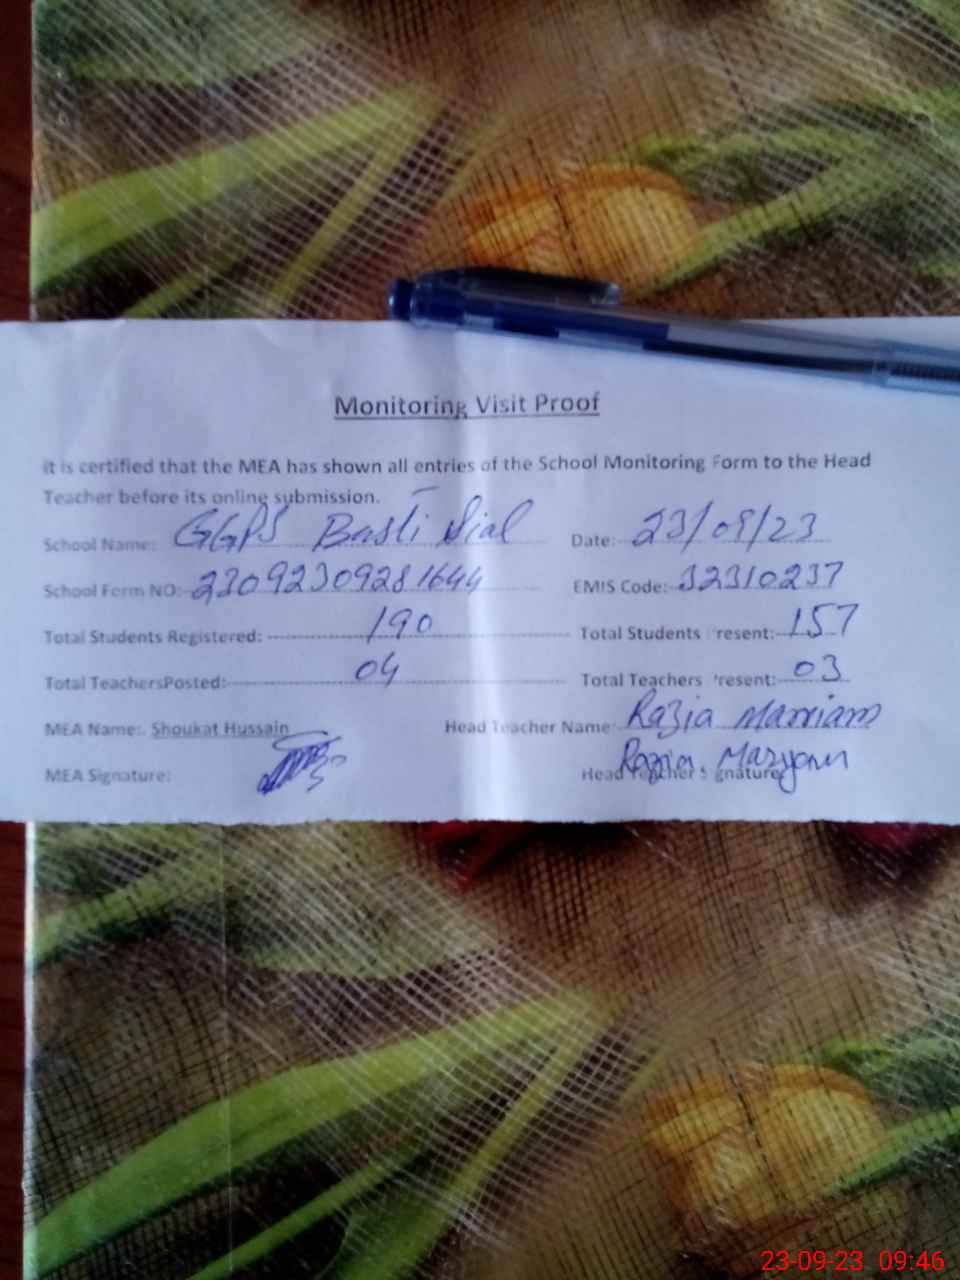 Monitoring Visit Proof
it is certified that the MEA has shown all entries of the School Monitoring Form to the Head
Teacher before its online submission.
School Name: GGPS Basti Sial Date: 23/09/23
School Form NO: 23092309281644 EMIS Code: 32310237
Total Students Registered: 190 Total Students Present: 157
Total TeachersPosted: 04 Total Teachers Present: 03
MEA Name: Shoukat Hussain Head Teacher Name: Razia Marriam
MEA Signature: Head Teacher Signature: Razia Maryam
23-09-23 09:46